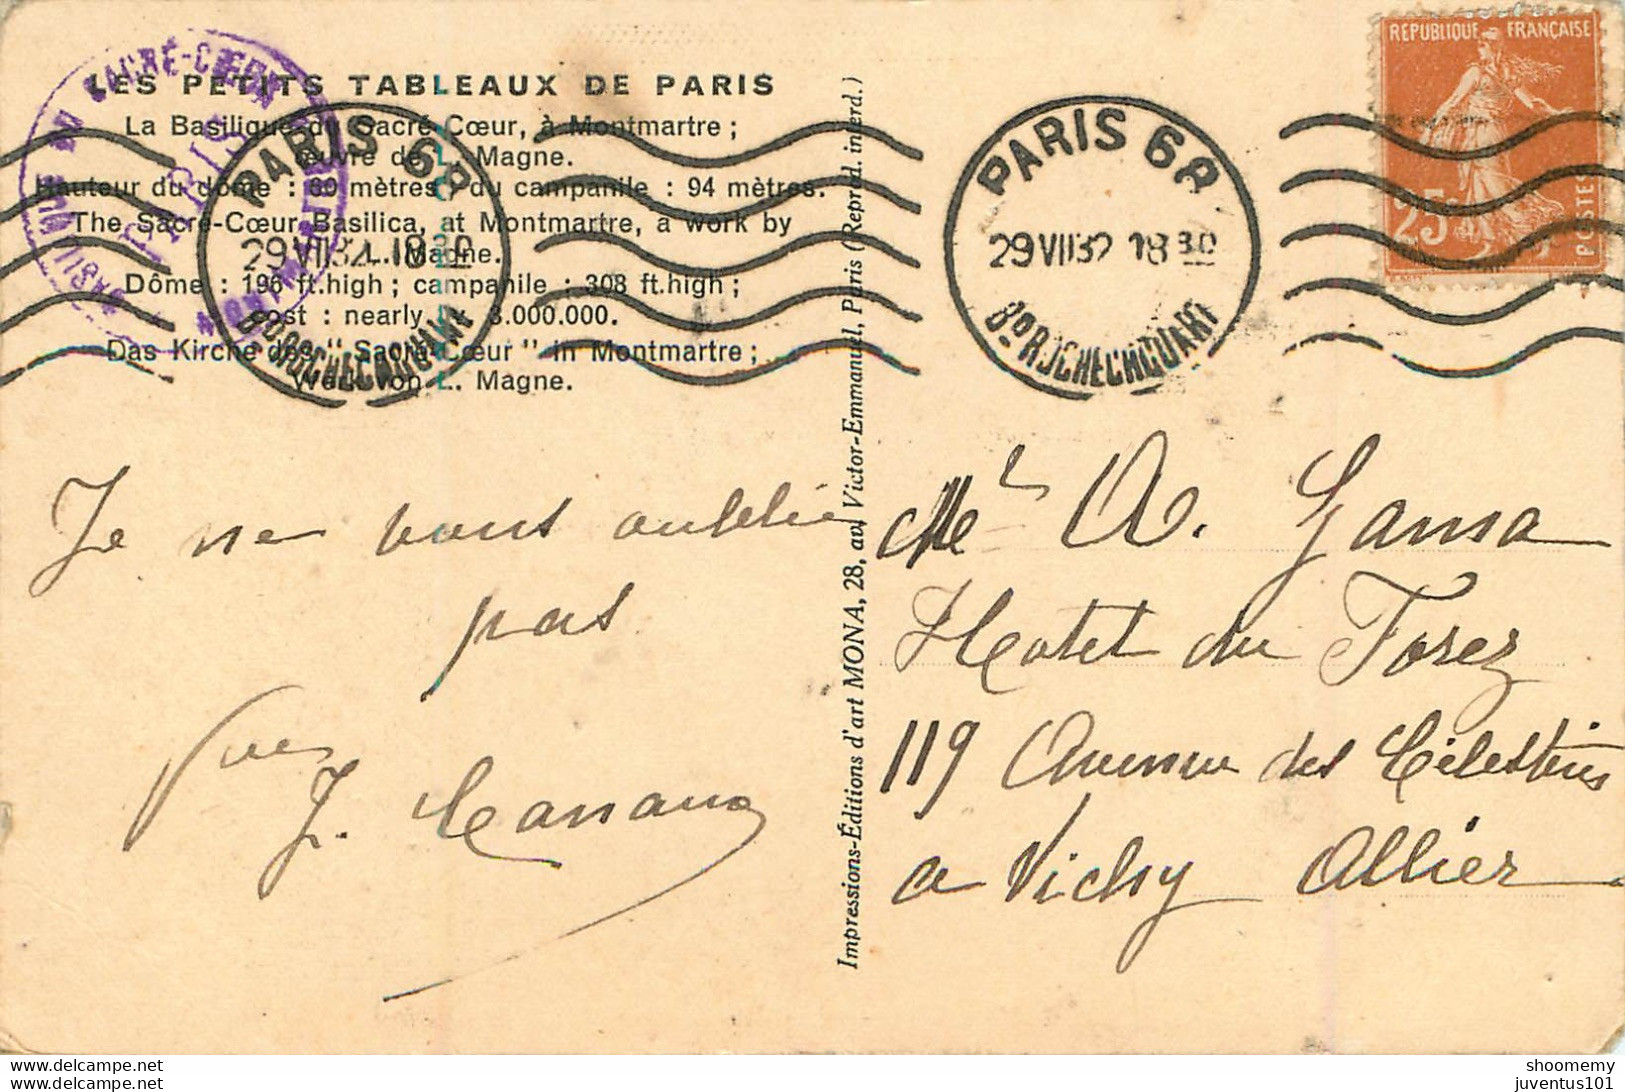 LES PETITS TABLEAUX DE PARIS
La Basilique du Sacré Cœur, à Montmartre ;
œuvre de L. Magne.
Hauteur du dôme : 60 mètres ; du campanile : 94 mètres.
The Sacré-Cœur Basilica, at Montmartre, a work by
L. Magne.
Dôme : 196 ft.high ; campanile : 308 ft.high ;
cost : nearly L. 3.000.000.
Das Kirche des " Sacré Cœur " in Montmartre ;
Werk von L. Magne.
BASILIQUE DU SACRÉ-CŒUR
PARIS
PARIS 68
29 VII 32 18 30
Bd ROCHECHOUART
PARIS 68
29 VII 32 18 30
Bd ROCHECHOUART
REPUBLIQUE FRANÇAISE
25c
POSTES
Je ne vous oublie
pas
J.
Impressions-Éditions d'art MONA, 28, av. Victor-Emmanuel, Paris (Reprod. interd.)
A. Gansa
Hotel du Forez
119 Avenue des Célestins
a Vichy Allier
shoomemy
juventus101